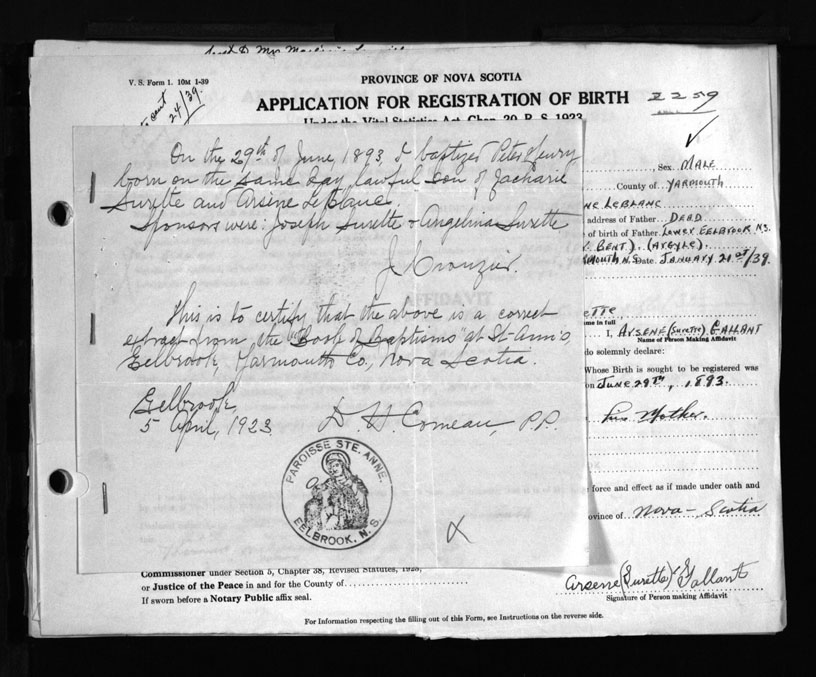 V. S. Form 1. 10M 1-39
PROVINCE OF NOVA SCOTIA
APPLICATION FOR REGISTRATION OF BIRTH
2259
Under the Vital Statistics Act, Chap. 20, R. S. 1923
24/39.
On the 29th of June, 1893, I baptized Peter Henry
born on the same day, lawful son of Zacharie
Surette and Arsène LeBlanc.
Sponsors were: Joseph Surette & Angelina Surette
J. Crouzier.
This is to certify that the above is a correct
extract from the "Book of Baptisms" at St. Ann's,
Eelbrook, Yarmouth Co., Nova Scotia.
Eelbrook,
5 April, 1923
D. H. Comeau, P.P.
PAROISSE STE. ANNE.
EELBROOK, N. S.
Sex MALE
County of YARMOUTH
NE LEBLANC
address of Father DEAD
of birth of Father LOWER EELBROOK N.S.
BENT). (ARGYLE).
N.S. Date. JANUARY 21st/39.
ETTE
me in full
I, ARSENE (SURETTE) GALLANT
Name of Person Making Affidavit
do solemnly declare:
Whose Birth is sought to be registered was
on JUNE 29TH, 1893.
Mother.
force and effect as if made under oath and
ovince of Nova-Scotia
AFFIDAVIT
Commissioner under Section 5, Chapter 38, Revised Statutes, 1923,
or Justice of the Peace in and for the County of
If sworn before a Notary Public affix seal.
Arsene (Surette) Gallant
Signature of Person making Affidavit
For Information respecting the filling out of this Form, see Instructions on the reverse side.